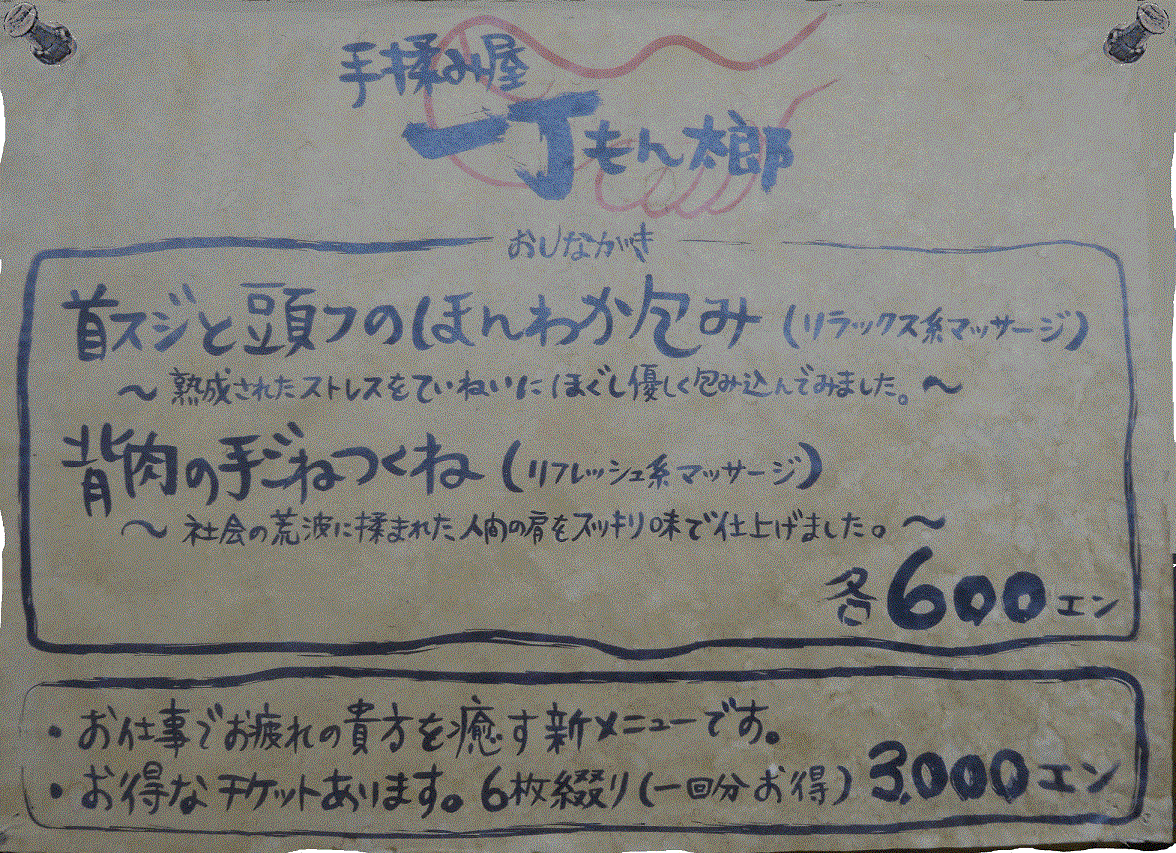 手揉み屋
一丁もん太郎
おしながき
首スジと頭フのほんわか包み (リラックス系マッサージ)
〜 熟成されたストレスをていねいにほぐし優しく包み込んでみました。〜
背肉の手ごねつくね (リフレッシュ系マッサージ)
〜 社会の荒波に揉まれた人間の肩をスッキリ味で仕上げました。〜
各600エン
・お仕事でお疲れの貴方を癒す新メニューです。
・お得なチケットあります。6枚綴り(一回分お得) 3,000エン